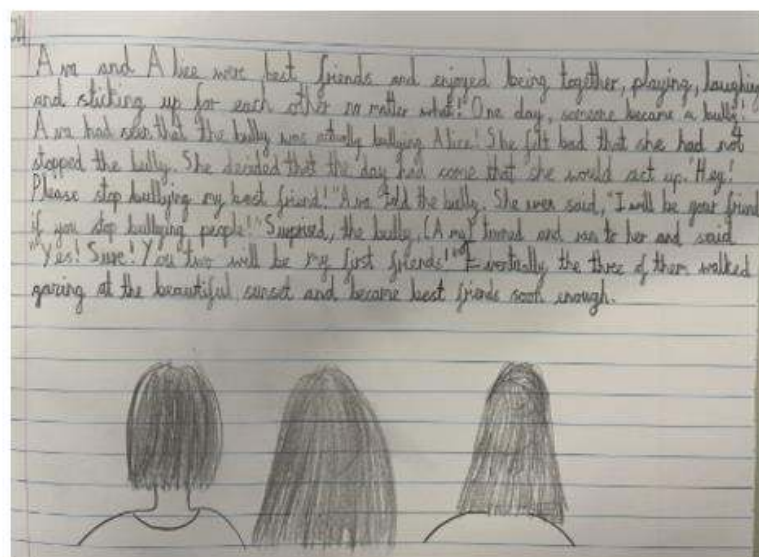 Ava and Alice were best friends and enjoyed being together, playing, laughing
and sticking up for each other no matter what! One day, someone became a bully!
Ava had seen that the bully was actually bullying Alice! She felt bad that she had not
stopped the bully. She decided that the day had come that she would act up. "Hey!
Please stop bullying my best friend!" Ava told the bully. She even said, "I will be your friend
if you stop bullying people!" Surprised, the bully, (Ama) turned and ran to her and said
"Yes! Sure! You two will be my first friends!" Eventually the three of them walked
gazing at the beautiful sunset and became best friends soon enough.